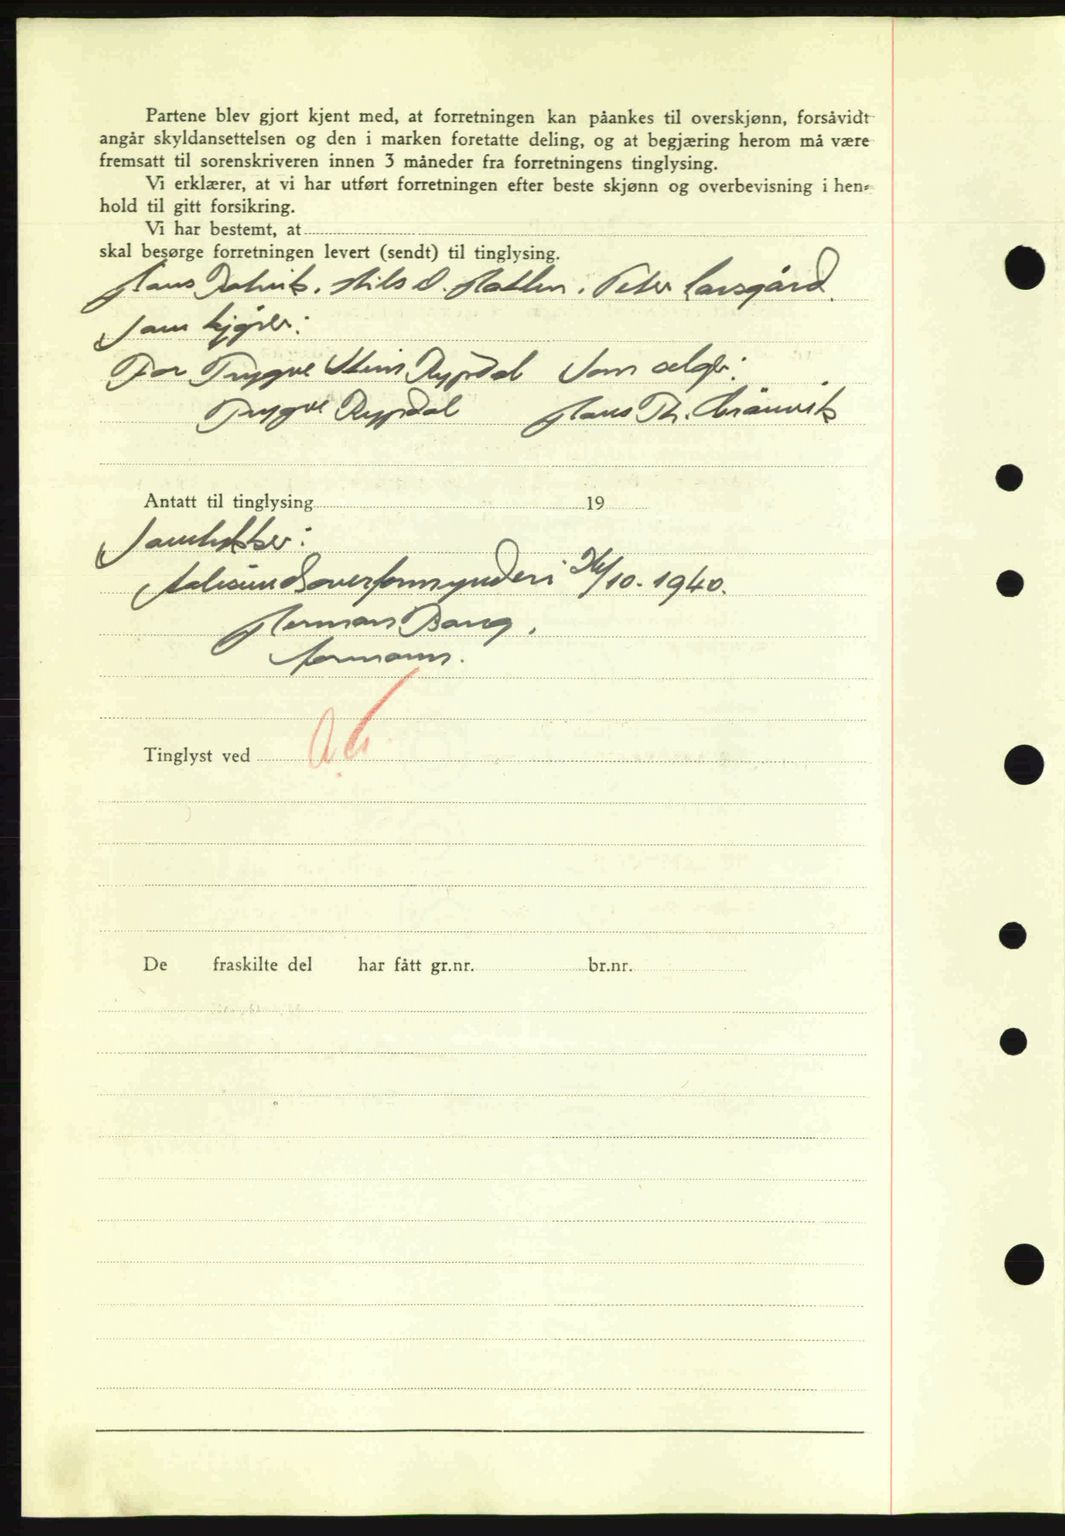 Partene blev gjort kjent med, at forretningen kan påankes til overskjønn, forsåvidt
angår skyldansettelsen og den i marken foretatte deling, og at begjæring herom må være
fremsatt til sorenskriveren innen 3 måneder fra forretningens tinglysing.
Vi erklærer, at vi har utført forretningen efter beste skjønn og overbevisning i hen-
hold til gitt forsikring.
Vi har bestemt, at
skal besørge forretningen levert (sendt) til tinglysing.
Hans Nils Peter Larsgård.
Som kjøper:
For Trygve Rypdal Som selger:
Trygve Rypdal Hans Th.
Antatt til tinglysing 19
Samtykker:
Aalesund overformynderi 24/10-1940.
Herman Bang.
formann.
Tinglyst ved
De fraskilte del har fått gr.nr. br.nr.